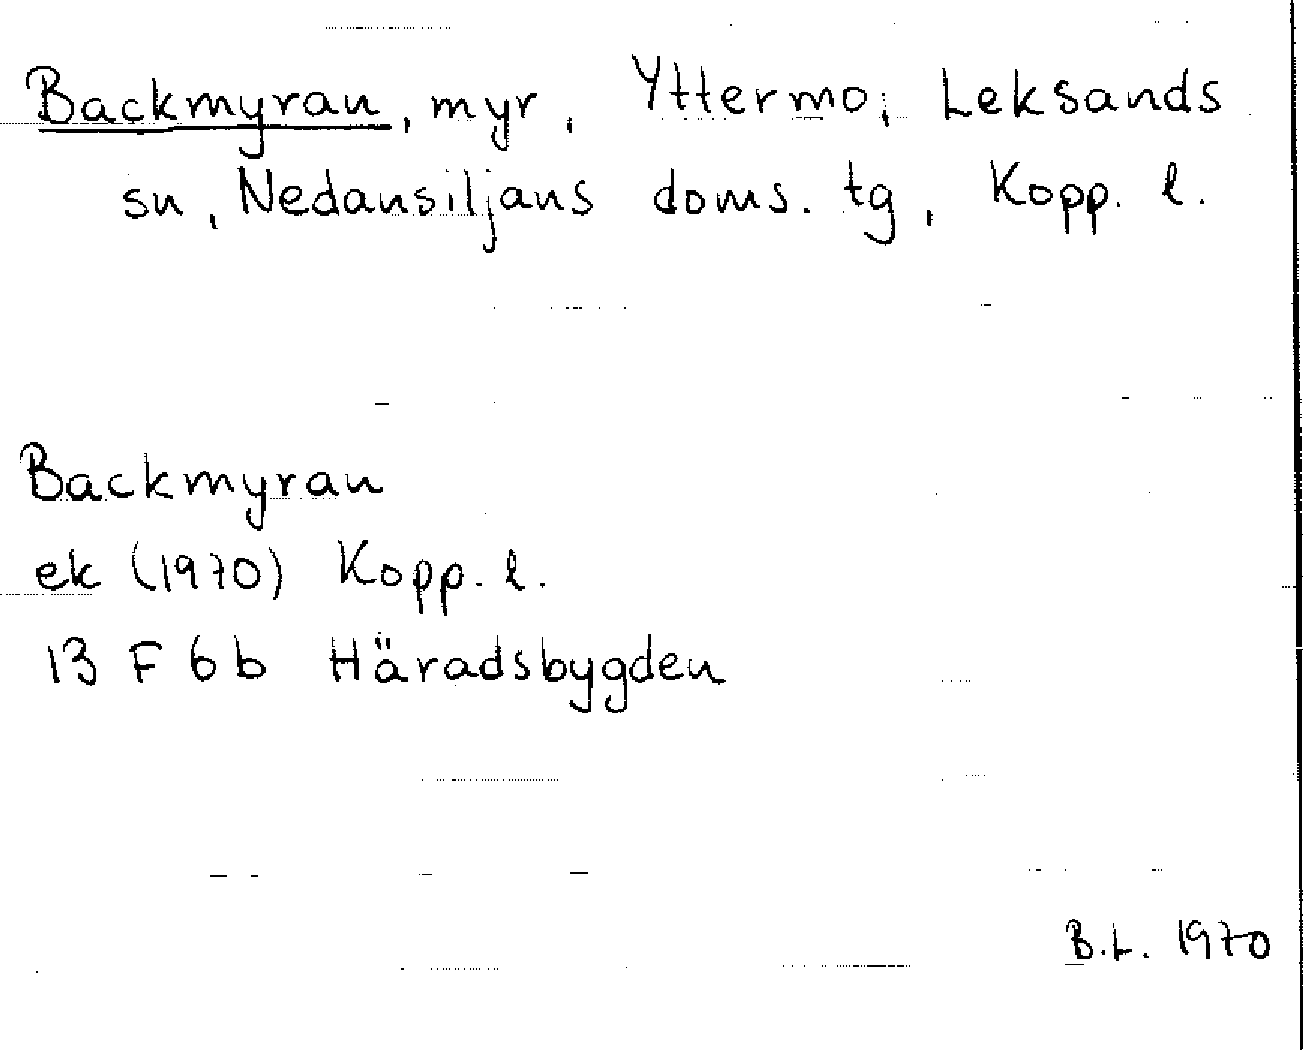 Backmyran, myr, Yttermo, Leksands
sn, Nedansiljans doms. tg, Kopp. l.
Backmyran
ek (1970) Kopp. l.
13 F 6 b Häradsbygden
B.L. 1970